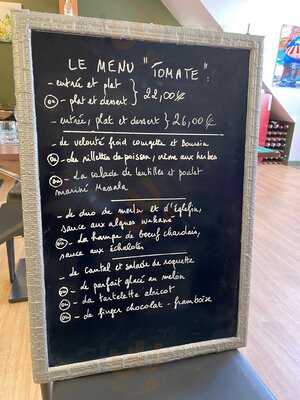 LE MENU "TOMATE":
- entrée et plat
ou - plat et dessert } 22,00€
- entrée, plat et dessert } 26,00€
- Le velouté froid courgette et boursin
ou - Les rillettes de poisson, mêlée aux herbes
ou - La salade de lentilles et poulet
mariné Massala
- Le duo de merlu et d'Eglefin,
sauce aux algues wakamé
ou - La hampe de bœuf charolais,
sauce aux échalotes
- Le Cantal et salade de roquette
ou - Le parfait glacé au melon
ou - La tartelette abricot
ou - Le finger chocolat - framboise